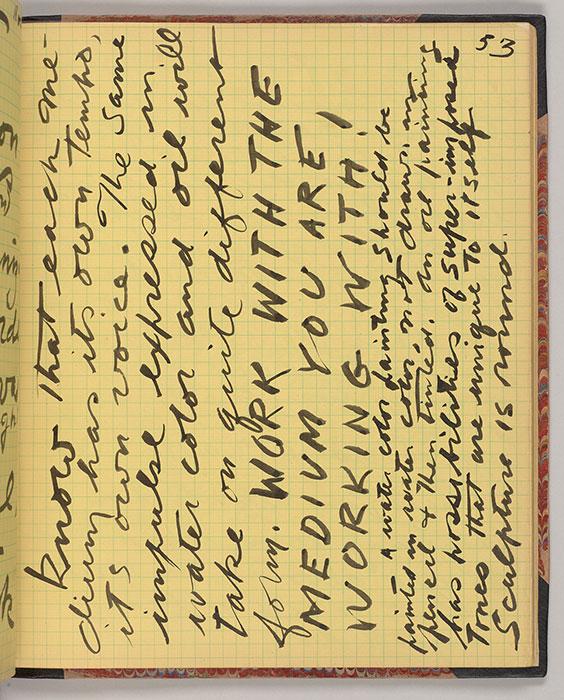 53
Know that each me-
dium has it's own tempo,
it's own voice. The same
impulse expressed in
water color and oil will
take on quite different
form. WORK WITH THE
MEDIUM YOU ARE
WORKING WITH!
A water color painting should be
painted in water color not drawn in
pencil & then tinted. An oil painting
has possibilities of super-imposed
Tones that are unique to itself.
Sculpture is round.